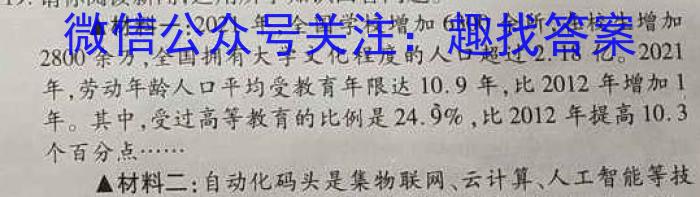 微信公众号关注：趣找答案
▲材料一:202 年,全国学校增加 6 余所,在校生增加
2800 余万,全国拥有大学文化程度的人口超过 2.18 亿。2021
年,劳动年龄人口平均受教育年限达 10.9 年,比 2012 年增加 1
年。其中,受过高等教育的比例是 24.9%,比 2012 年提高 10.3
个百分点……
▲材料二:自动化码头是集物联网、云计算、人工智能等技